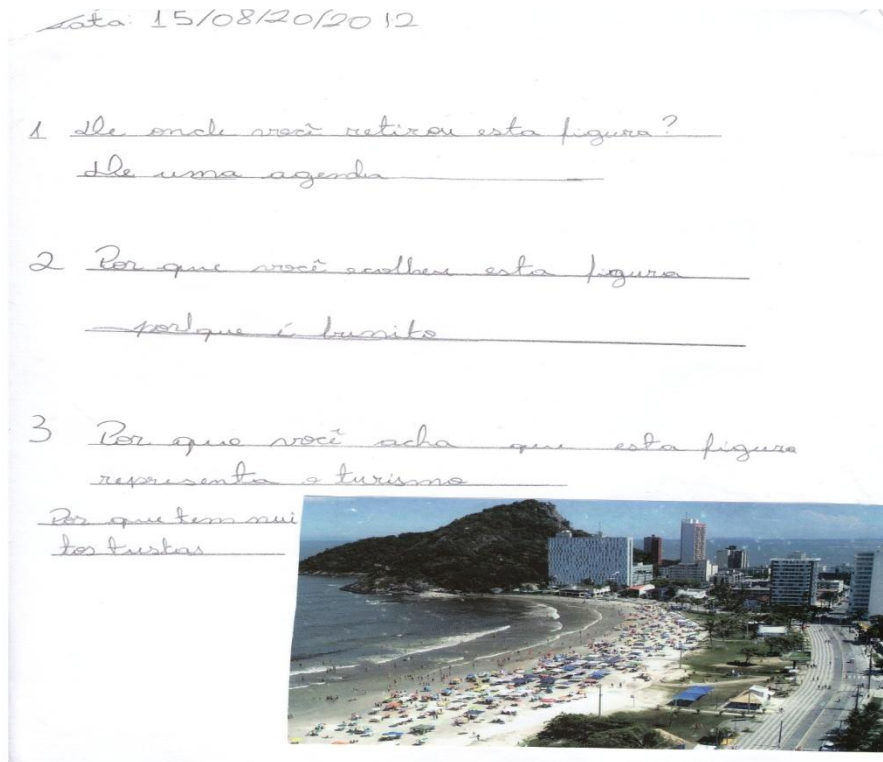 Data: 15/08/20/2012
1 De onde você retirou esta figura?
De uma agenda
2 Por que você ecolheu esta figura
porlque é bunito
3 Por que você acha que esta figura
representa o turismo
Por que tem mui
tos tustas